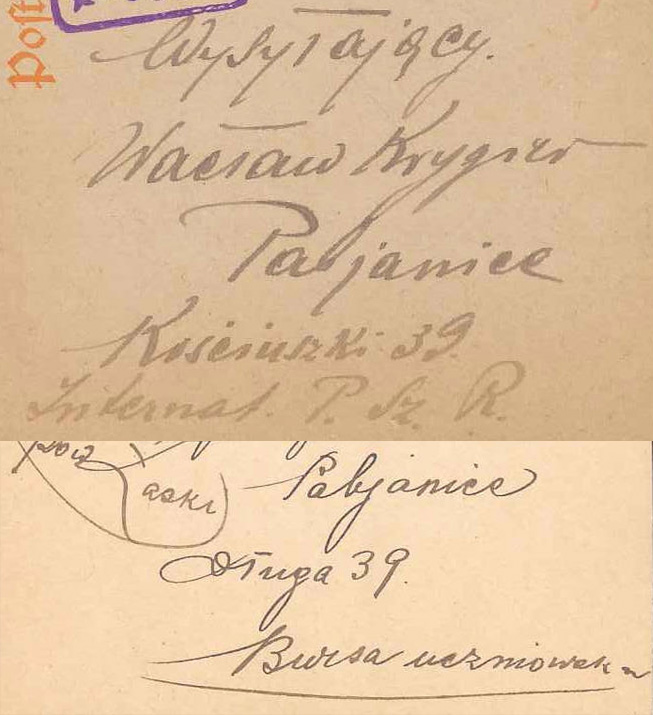 Post
Wysyłający.
Wacław Krygier
Pabjanice
Kościuszki 39.
Internat. P. Sz. R.
pow
Łaski
Pabjanice
Długa 39.
Bursa uczniowska